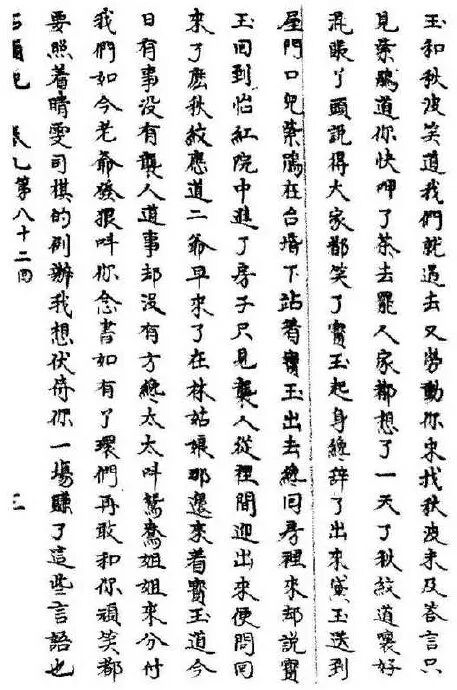 玉和秋波笑道我們就過去又勞動你来找秋波未及答言只
見紫鵑道你快呷了茶去罷人家都想了一天了秋紋道嚷好
混賬丫頭説得大家都笑了寳玉起身纔辞了出来黛玉送到
屋門口兒紫鵑在台堦下站着寳玉出去纔囘房裡來却説寳
玉回到怡紅院中進了房子只見襲人從裡間迎出來便問囘
來了麽秋紋應道二爺早来了在林姑娘那邊來着寳玉道今
日有事没有襲人道事却没有方纔太太叫鴛鴦姐姐来分付
我們如今老爺發狠叫你念書如有了環們再敢和你頑笑都
要照着晴雯司棋的例辦我想伏侍你一場賺了這些言語也
第八十二囘 三